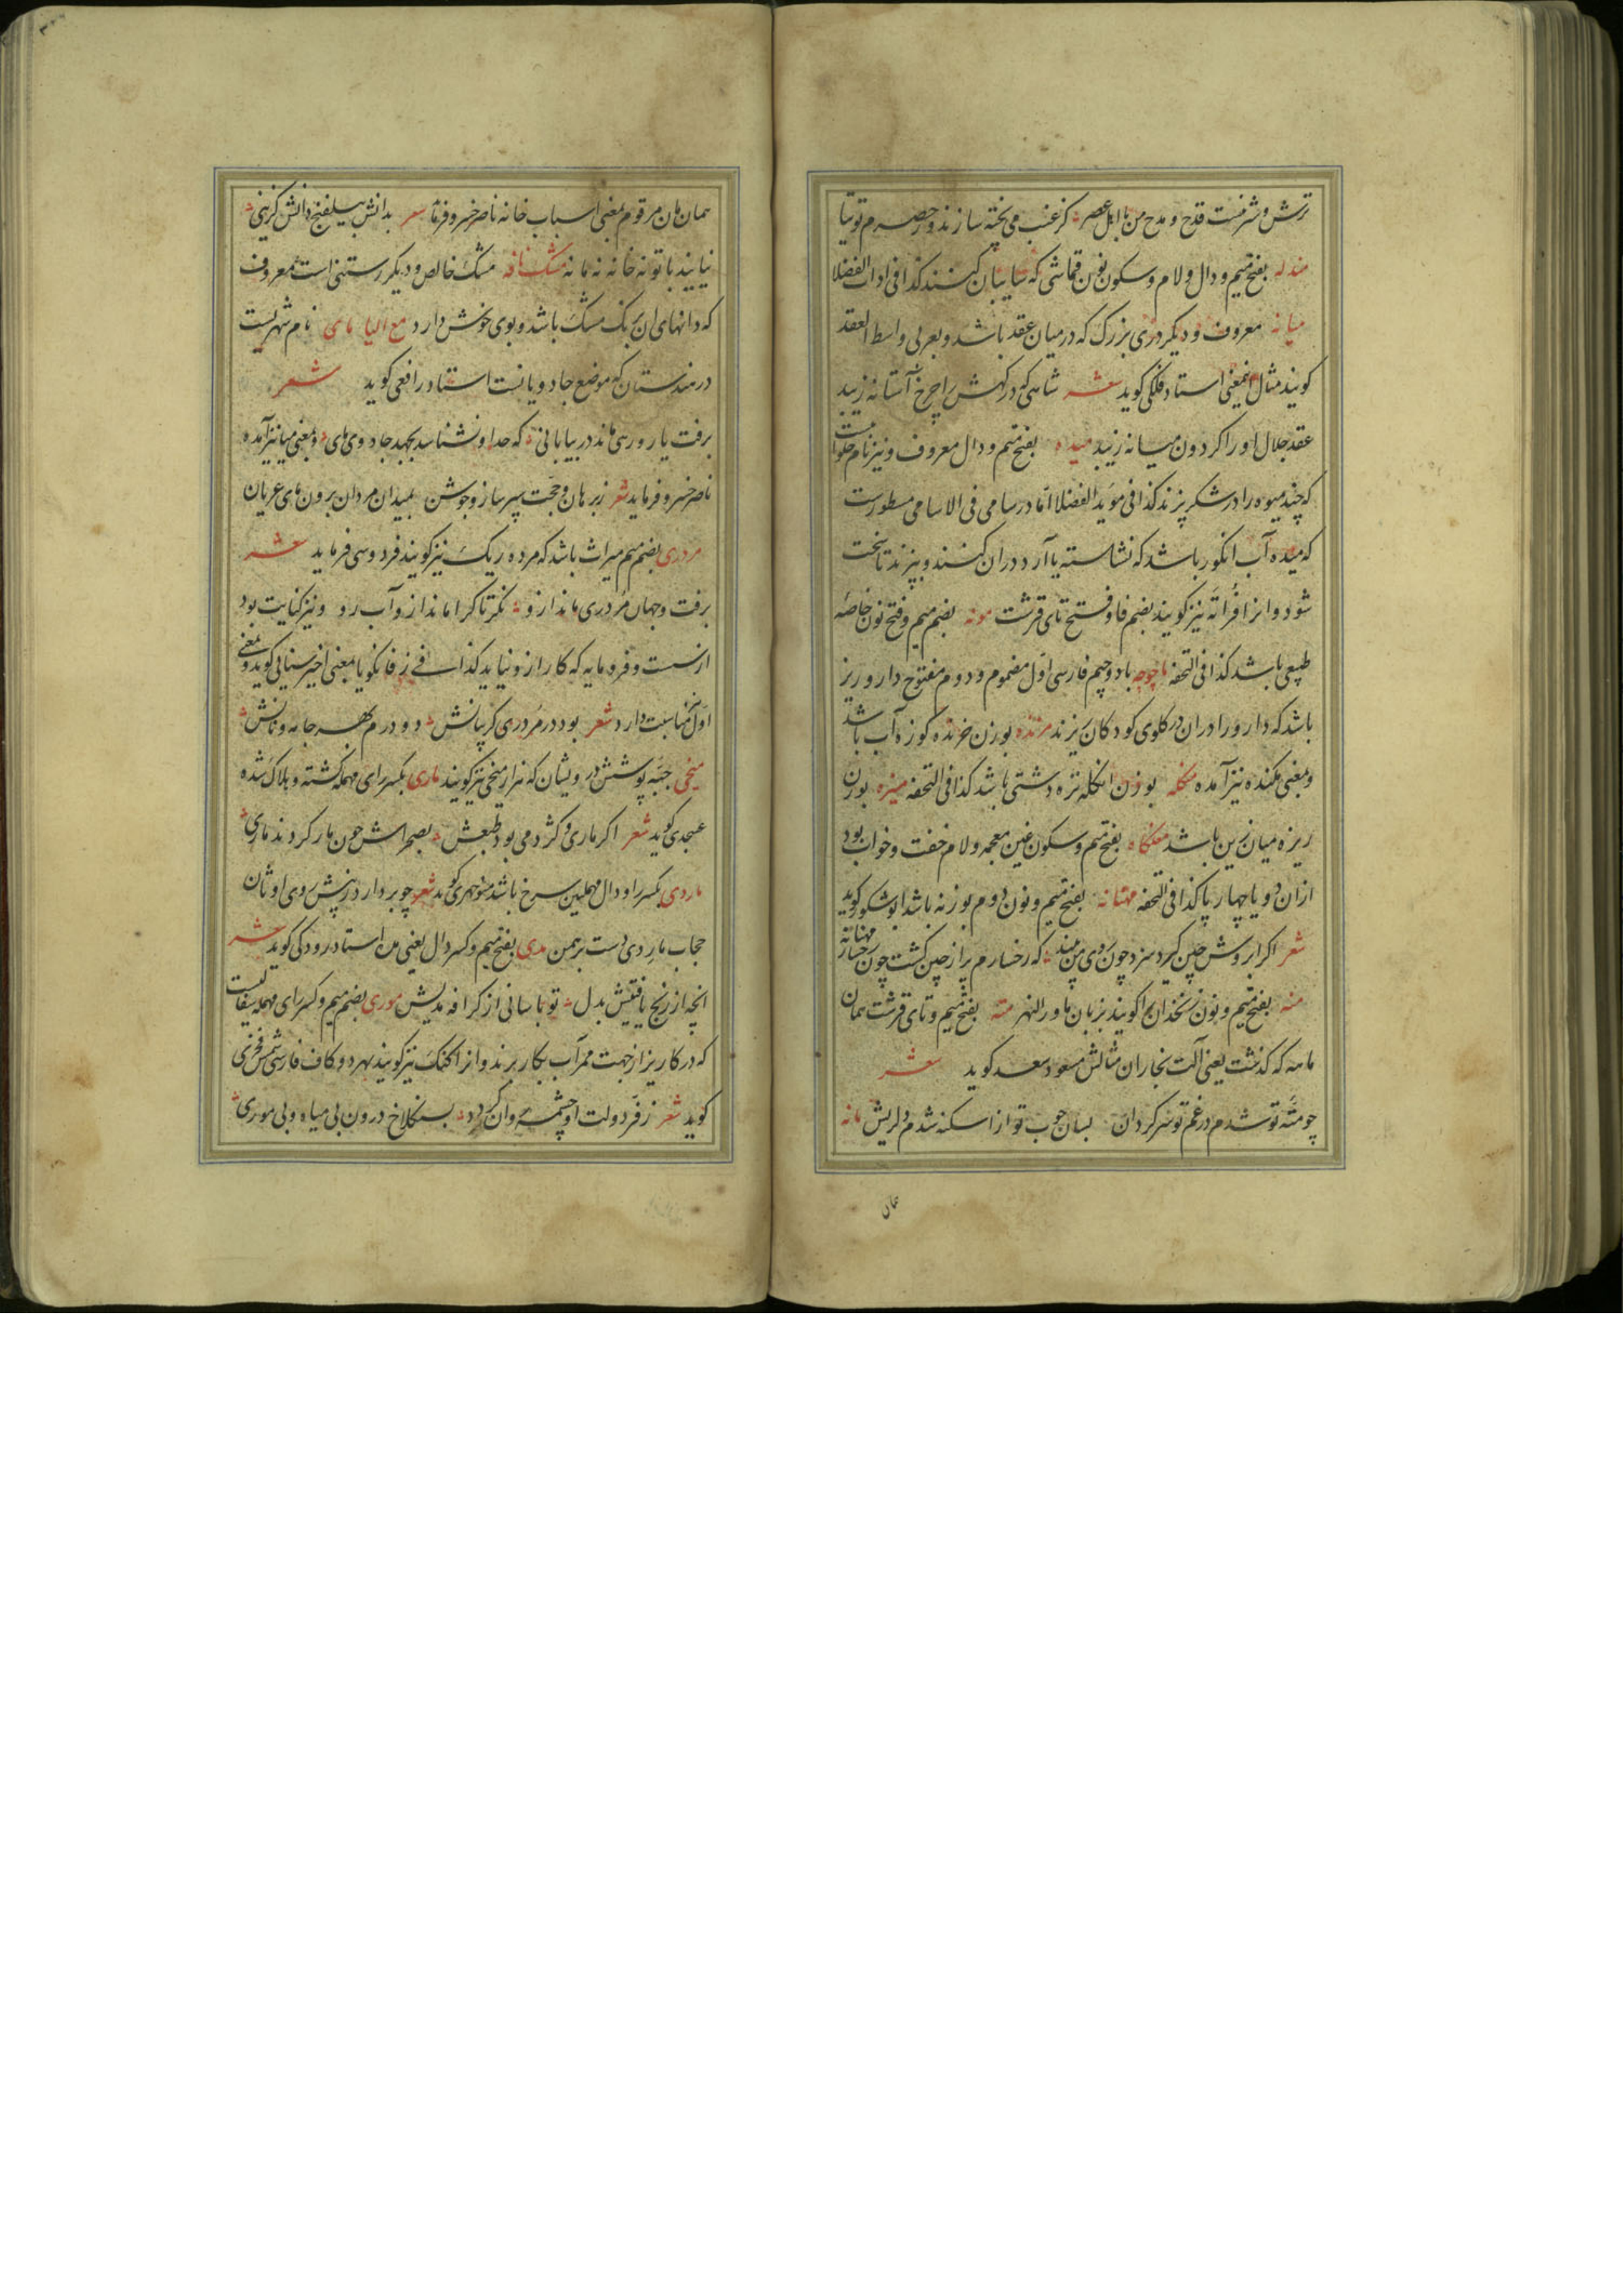 ترش و شرمنت قدح و مدح من با اهل عصر کز عنب می پخته سازند و حصرم توتیا
مندله بفتح میم و دال و لام و سکون نون قماشی که سایبان کنند کذا فی ادات الفضلا
میانه معروف و دیکر دری بزرک که در میان عقد باشد و بعربی واسط العقد
کویند مثال این معنی استاد فلکی کوید شعر شاهی که درکهش را چرخ آستانه زیبد
عقد جلال او را کردون میانه زیبد میده بفتح میم و دال معروف و نیز نام حلوائیست
که چند میوه را در شکر پزند کذا فی موید الفضلا اما در سامی فی الاسامی مسطورست
که میده آب انکور باشد که نشاسته یا آرد دران کنند و بپزند تا سخت
شود و انرا فراته نیز کویند بضم فا و فتح تای قرشت مونه بضم میم و فتح نون خاصه
طبیعی باشد کذا فی التحفه ماچوچه با دو جیم فارسی اول مضموم و دوم مفتوح دارو ریز
باشد که دارو را دران در کلوی کودکان ریزند مرنده بوزن خرنده کوزه آب باشد
و بمعنی مکنده نیز آمده منکله بوزن انکله تره دشتی باشد کذا فی التحفه میزه بوزن
ریزه میان زین باشد مغلکاه بفتح میم و سکون غین معجمه و لام خفت و خواب بود
ازان دو یا چهار پا کذا فی التحفه مهنانه بفتح میم و نون دوم بوزنه باشد ابو شکور کوید
شعر اکر ابروش چین کیرد سزد چون روی من بیند که رخسارم پر از چین کشت چون رخسار مهنانه
منه بفتح میم و نون زنخدان را کویند بزبان ماورالنهر مته بفتح میم و تای قرشت همان
ماهه که کذشت یعنی آلت نجاران مثالش مسعود سعد کوید شعر
چو مته تو شدم در غم تو سرکردان بسان چوب تو از اسکنه شدم دلریش مانه
همان
همان مان مرقوم بمعنی اسباب خانه ناصر خسرو فرماید شعر بدانش بیلفنج دانش کزینی
نیایند با تو نه خانه نه مانه مشک نافه مشک خالص و دیکر رستنی است معروف
که دانهای ان برنک مشک باشد و بوی خوش دارد مع الیا مای نام شهریست
در هندستان که موضع جادویانست استاد رافعی کوید شعر
برفت یار و رهی ماند در بیابانی که حد او نشناسد بجهد جادوی مای و بمعنی میا نیز آمده
ناصر خسرو فرماید شعر ز برهان و حجت سپر ساز و جوشن بمیدان مردان برون مای عریان
مردری بضم میم میراث باشد که مرده ریک نیز کویند فردوسی فرماید شعر
برفت و جهان مردری ماند ازو نکر تا کرا ماند ازو آب رو و نیز کنایت بود
از سست و فرومایه که کار ازو نیاید کذا فی زفانکویا بمعنی اخیر سنایی کوید و بمعنی
اول نیز مناسبت دارد شعر بود در مردری کریبانش دو درم بهر جامه و نانش
میخی جبه پوشش درویشان که هزار میخی نیز کویند ماری بکسر رای مهمله کشته و هلاک شده
عسجدی کوید شعر اکر ماری و کژدمی بود طبعش بصحراش چون مار کردند ماری
ماردی بکسر را و دال مهملین سرخ باشد منوچهری کوید شعر چو بردارد ز پیش روی اوثان
حجاب ماردی دست برهمن مدی بفتح میم و کسر دال یعنی مده استاد رودکی کوید شعر
انچه از رنج یافتیش بدل تو باسانی از کرافه مدیش موری بضم میم و کسر رای مهمله سفالیست
که در کاریز از جهت ممر آب بکار برند و انرا کنک نیز کویند بهر دو کاف فارسی شمس فخری
کوید شعر ز فر دولت او چشمه روان کردد بسنکلاخ درون بی میاه و بی موری